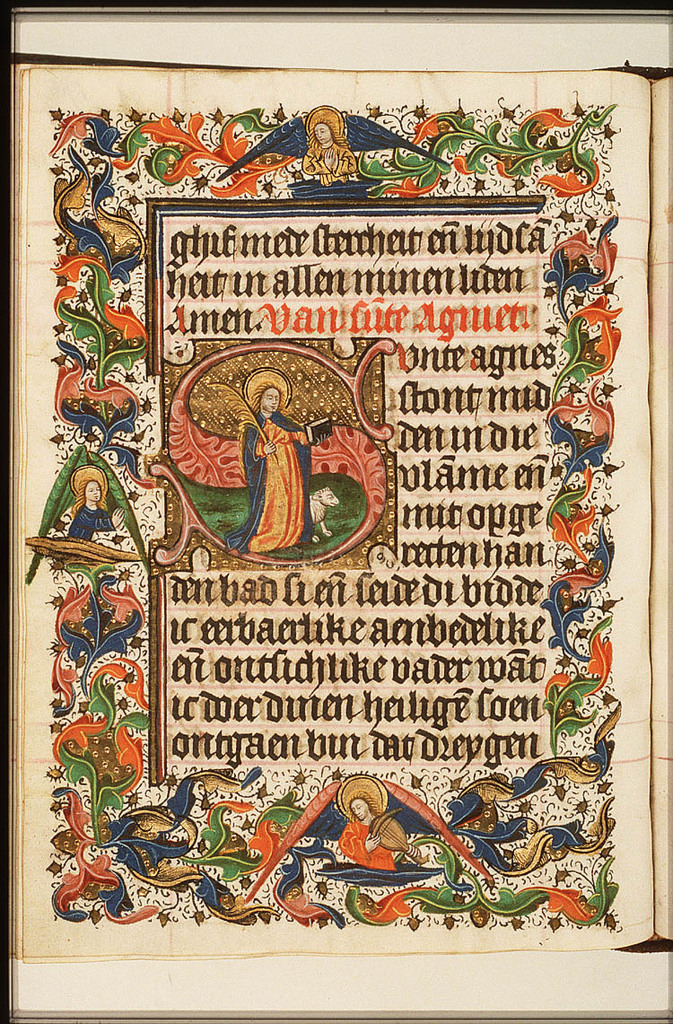 ghif mede stercheit en̄ lijdsā
heit in allen minen liden
Amen. Van sūte Agniet.
Sunte agnes
stont mid
den in die
vlāme en̄
mit opge
recten han
den bad si en̄ seide di bidde
ic eerbaerlike aenbedelike
en̄ ontsichlike vader wāt
ic doer dinen heiligē soen
ontgaen bin dat dreygen